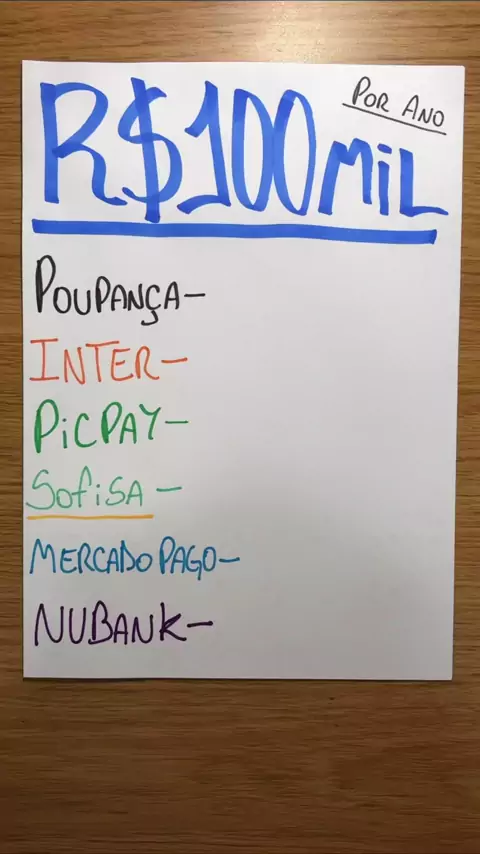 R$100MiL
POR ANO
POUPANÇA-
INTER-
PiCPAY-
SOfiSA-
MERCADO PAGO-
NUBANK-